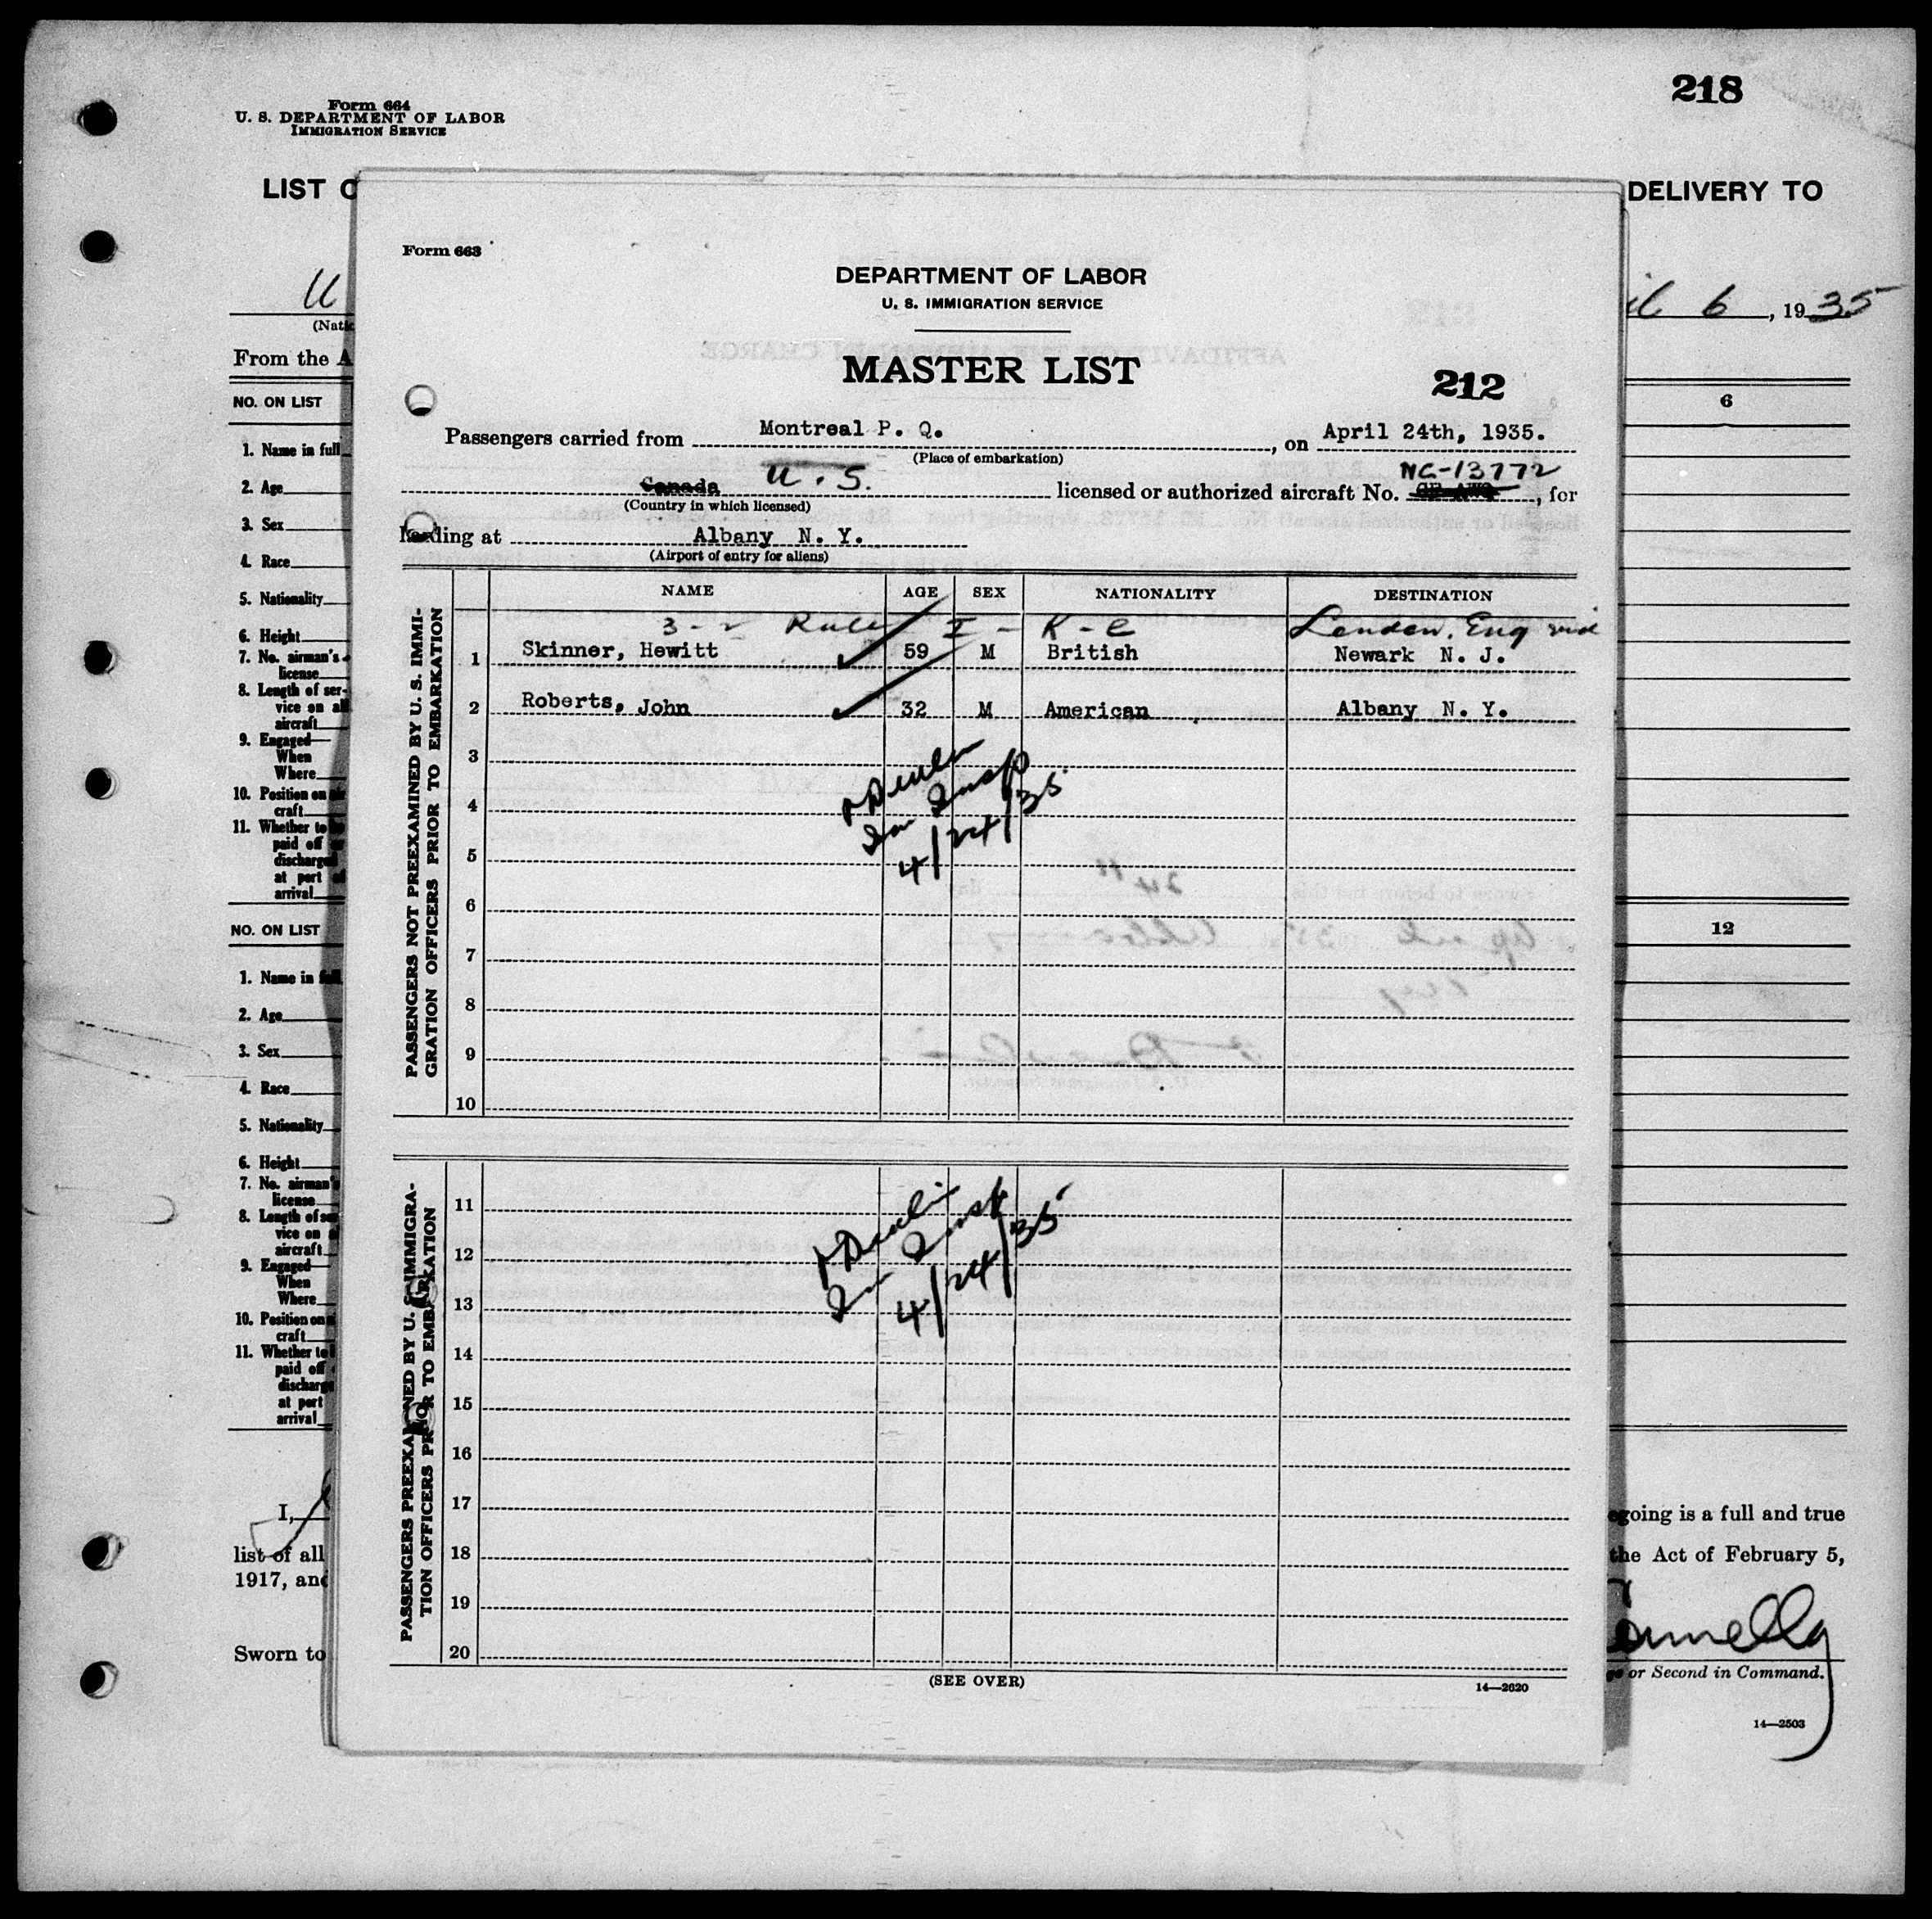 218
Form 664
U. S. DEPARTMENT OF LABOR
IMMIGRATION SERVICE
LIST O
DELIVERY TO
U
6, 1935
(Natio
From the A
NO. ON LIST
6
1. Name in full
2. Age
3. Sex
4. Race
5. Nationality
6. Height
7. No. airman's
license
8. Length of ser-
vice on all
aircraft
9. Engaged—
When
Where
10. Position on air
craft
11. Whether to be
paid off or
discharged
at port of
arrival
NO. ON LIST
12
1. Name in full
2. Age
3. Sex
4. Race
5. Nationality
6. Height
7. No. airman's
license
8. Length of ser
vice on a
aircraft
9. Engaged—
When
Where
10. Position on
craft
11. Whether to
paid off
discharge
at port
arrival
I,
egoing is a full and true
list of all
the Act of February 5,
1917, and
Sworn to
or Second in Command.
14—2503
Form 663
DEPARTMENT OF LABOR
U. S. IMMIGRATION SERVICE
MASTER LIST
212
Passengers carried from Montreal P. Q., on April 24th, 1935.
(Place of embarkation)
Canada U.S. licensed or authorized aircraft No. NC-13772, for
(Country in which licensed)
landing at Albany N. Y.
(Airport of entry for aliens)
PASSENGERS NOT PREEXAMINED BY U. S. IMMI-
GRATION OFFICERS PRIOR TO EMBARKATION
NAME AGE SEX NATIONALITY DESTINATION
3-2 Rule I - K-C London, Eng via
1 Skinner, Hewitt 59 M British Newark N. J.
2 Roberts, John 32 M American Albany N. Y.
3
4
5
Insp
4/24/35
6
7
8
9
10
PASSENGERS PREEXAMINED BY U. S. IMMIGRA-
TION OFFICERS PRIOR TO EMBARKATION
11
12
13
Insp
4/24/35
14
15
16
17
18
19
20
(SEE OVER)
14—2620